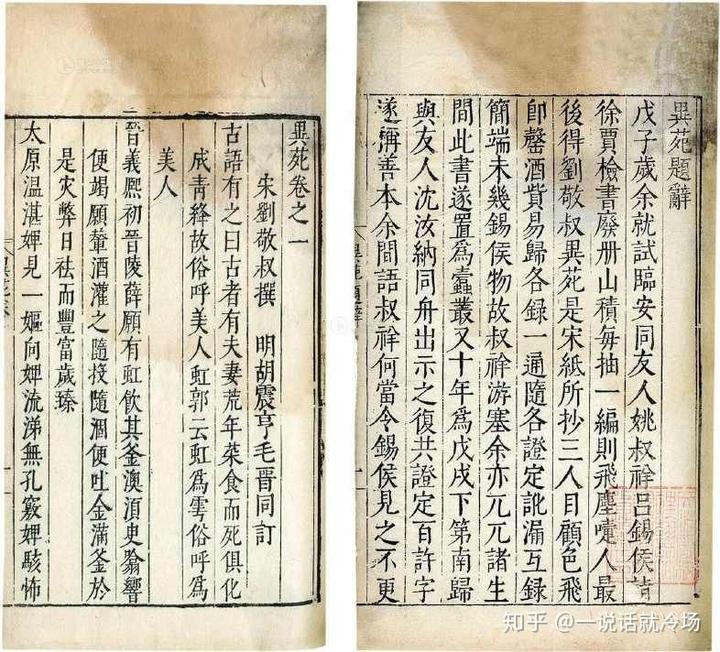 異苑題辭
戊子歲余就試臨安同友人姚叔祥呂錫侯詣
徐賈檢書廢册山積每抽一編則飛塵嚏人最
後得劉敬叔異苑是宋紙所抄三人目顧色飛
卽罄酒貲易歸各錄一通隨各證定訛漏互錄
簡端未幾錫侯物故叔祥游塞余亦兀兀諸生
間此書遂置爲蠹叢又十年爲戊戌下第南歸
與友人沈汝納同舟出示之復共證定百許字
遂稱善本余間語叔祥何當令錫侯見之不更
異苑卷之一
宋劉敬叔撰 明胡震亨毛晉同訂
古語有之曰古者有夫妻荒年菜食而死俱化
成青絳故俗呼美人虹郭云虹爲雩俗呼爲
美人
晉義熙初晉陵薛願有虹飲其釜澳湏史翕響
便竭願輦酒灌之隨投隨涸便吐金滿釜於
是災弊日祛而豐富歲臻
太原溫湛婢見一嫗向婢流涕無孔竅婢駭怖
知乎 @一说话就冷场